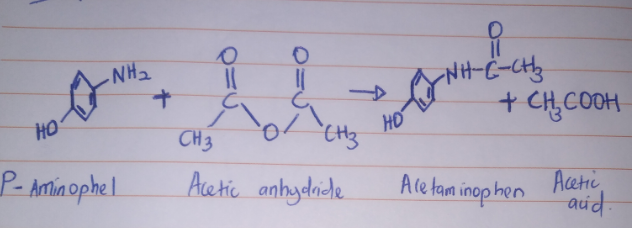 O
O O
NH-C-CH3
NH2 + C C → + CH3COOH
HO CH3 O CH3 HO
P-Aminophel Acetic anhydride Acetaminophen Acetic
acid.